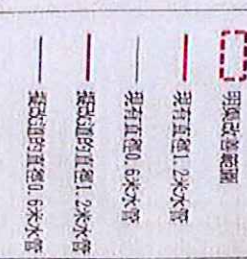 明渠改善範圍
現有直徑1.2米水管
現有直徑0.6米水管
擬改道的直徑1.2米水管
擬改道的直徑0.6米水管